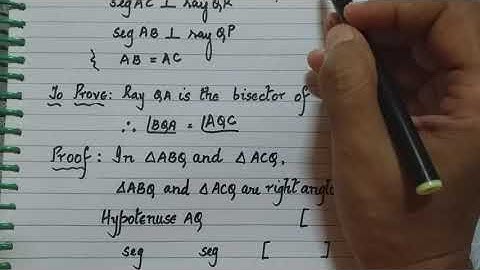 seg AC ⊥ ray QR
seg AB ⊥ ray QP
} AB = AC
To Prove: Ray QA is the bisector of
∴ ∠BQA = ∠AQC
Proof: In △ABQ and △ACQ,
△ABQ and △ACQ are right angle
Hypotenuse AQ [
seg seg [ ]